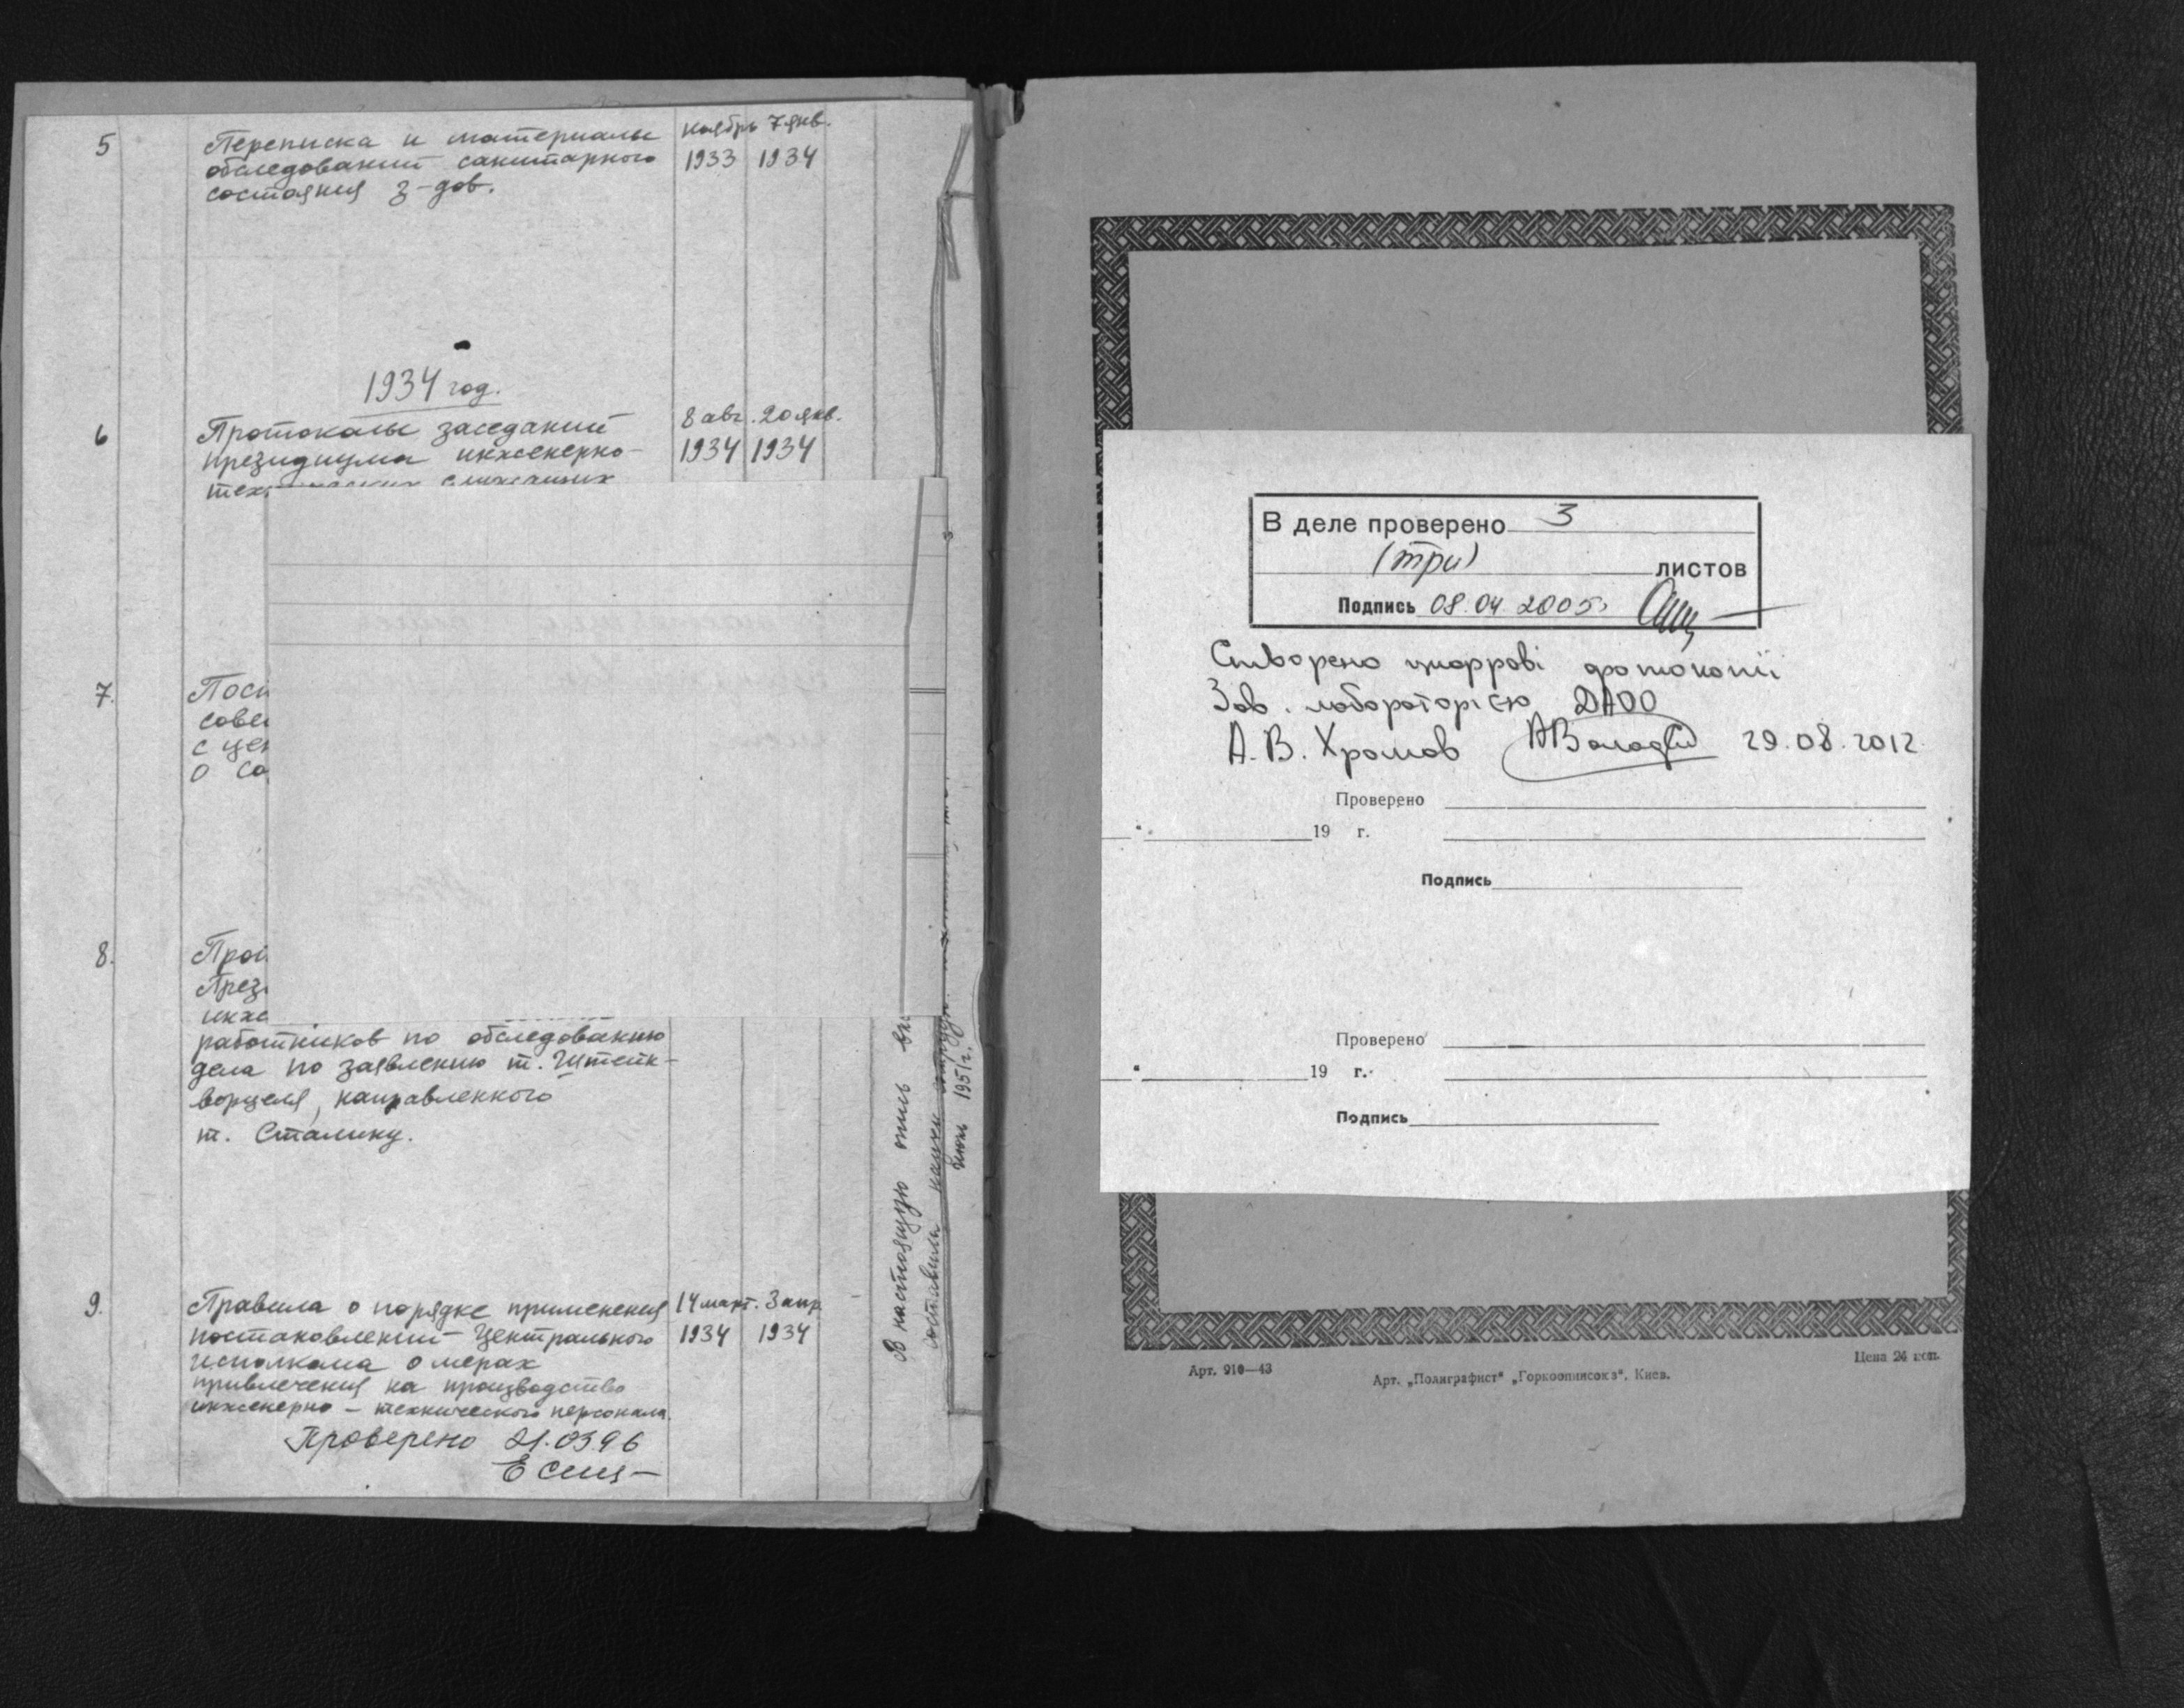 5
Переписка и материалы
обследований санитарного
состояния з-дов.
ноябрь 7 янв.
1933 1934
1934 год.
6
Протоколы заседаний
президиума инженерно-
8 авг. 20 янв.
1934 1934
7.
8.
работников по обследованию
дела по заявлению т. Штейн-
ворцеля, направленного
т. Сталину.
9.
Правила о порядке применения
постановлений Центрального
исполкома о мерах
привлечения на производство
инженерно - технического персонала.
14 март. 3 апр.
1934 1934
Проверено 21.03.96
В настоящую опись
составили
Июнь 1951 г.
В деле проверено 3
(три)
листов
Подпись 08.04.2005
Створено цифрові фотокопії
Зав. лабораторією ДАОО
А.В. Хромов 29.08.2012
Проверено
19 г.
Подпись
Проверено
19 г.
Подпись
Арт. 910—43
Арт. „Полиграфист“ Киев.
Цена 24 коп.